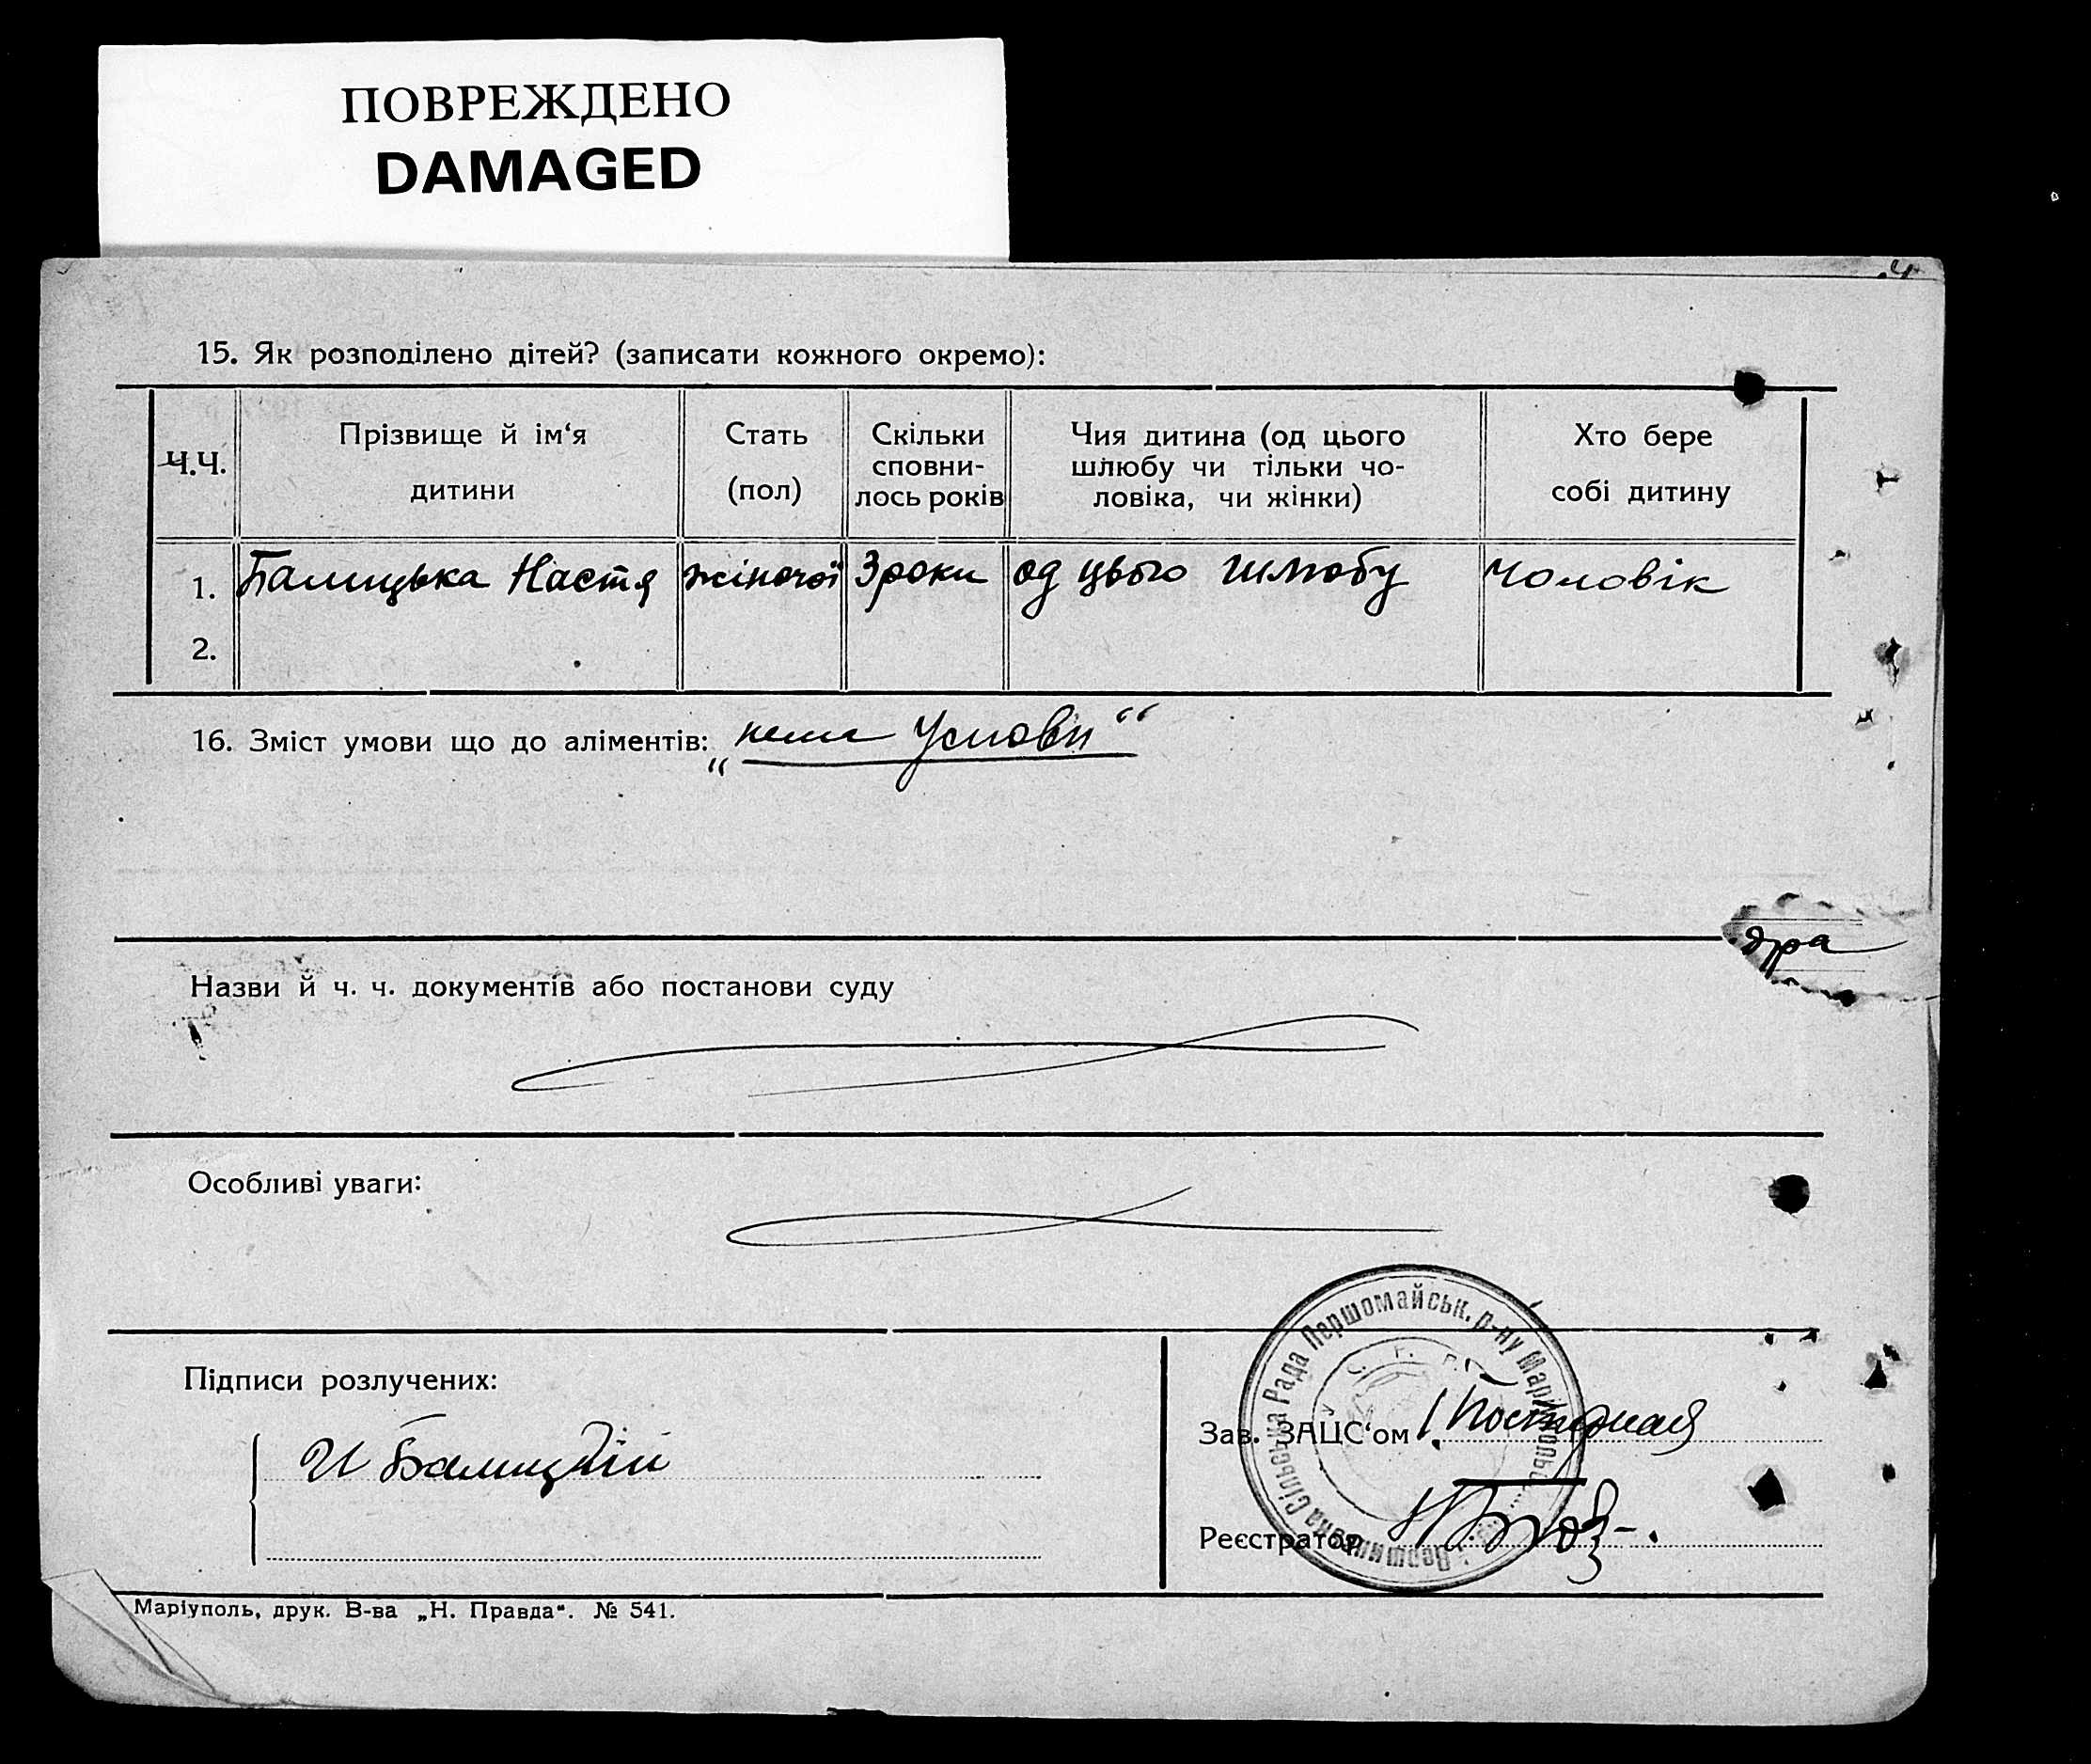 ПОВРЕЖДЕНО
DAMAGED
15. Як розподілено дітей? (записати кожного окремо):
Ч.Ч.
Прізвище й ім‘я
дитини
Стать
(пол)
Скільки
сповни-
лось років
Чия дитина (од цього
шлюбу чи тільки чо-
ловіка, чи жінки)
Хто бере
собі дитину
1. Балицька Настя жіночої 3 роки од цього шлюбу Чоловік
2.
16. Зміст умови що до аліментів: „нема Умови“
Назви й ч. ч. документів або постанови суду
Особливі уваги:
Підписи розлучених:
И Балицкій
Зав. ЗАЦС‘ом
Реєстратор
Сільська Рада Першомайськ. р-ну Маріюпольс
Маріуполь, друк. В-ва „Н. Правда“. № 541.